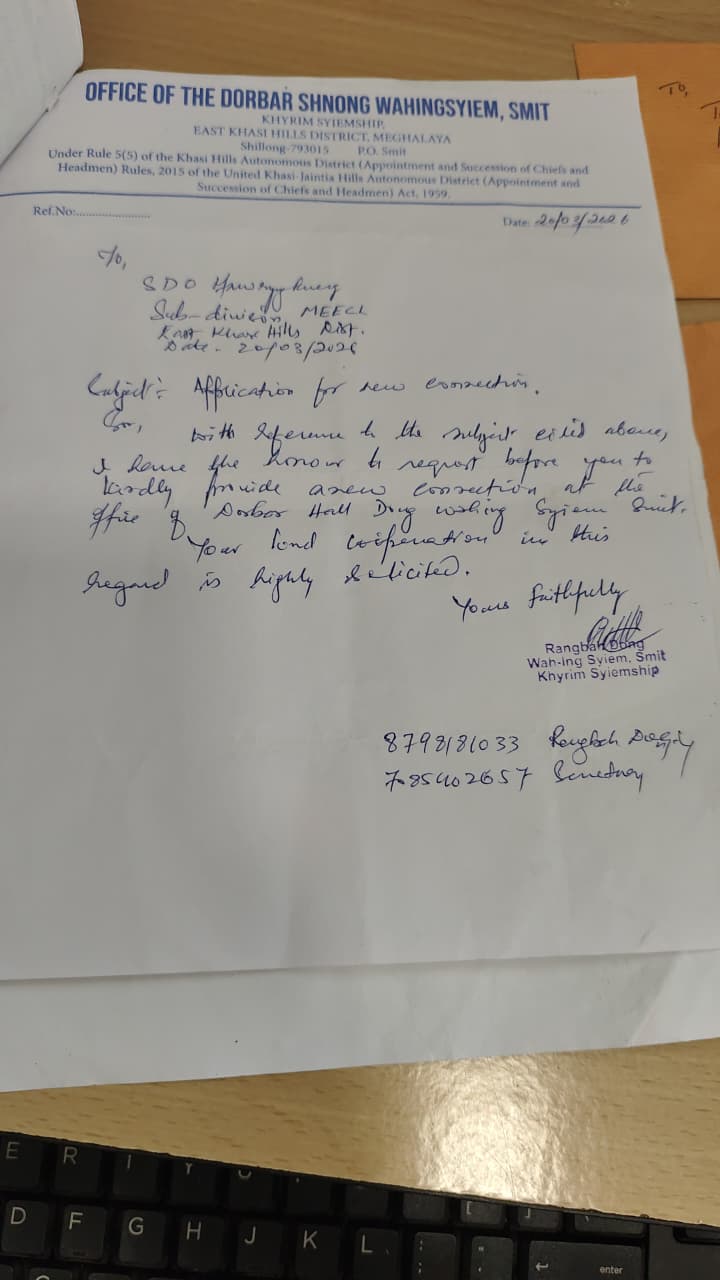 OFFICE OF THE DORBAR SHNONG WAHINGSYIEM, SMIT
KHYRIM SYIEMSHIP,
EAST KHASI HILLS DISTRICT, MEGHALAYA
Shillong-793015 P.O. Smit
Under Rule 5(5) of the Khasi Hills Autonomous District (Appointment and Succession of Chiefs and
Headmen) Rules, 2015 of the United Khasi-Jaintia Hills Autonomous District (Appointment and
Succession of Chiefs and Headmen) Act, 1959.
Ref.No:......................
Date: 20/03/2026
To,
SDO
Sub-division MEECL
East Khasi Hills Dist.
Date - 20/03/2026
Subject:- Application for new connection.
Sir,
with reference to the subject cited above,
I have the honour to request before you to
kindly provide a new connection at the
office of Dorbar Hall Dong Syiem Smit.
Your kind in this
regard is highly solicited.
Yours faithfully
Rangbah Dong
Wah-ing Syiem, Smit
Khyrim Syiemship
8798181033 Rangbah
785402657 Secretary
To,
E R T Y
D F G H J K L
enter